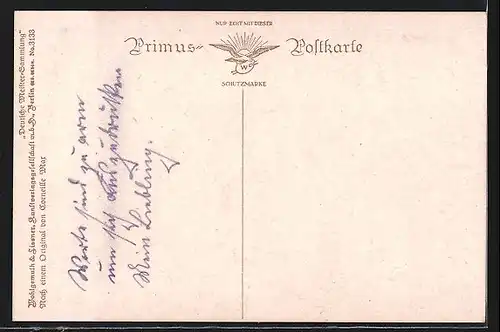 NUR ECHT MIT DIESER
Primus-Postkarte
W
SCHUTZMARKE
„Deutsche Meister-Sammlung"
Wohlgemuth & Lissner, Kunstverlagsgesellschaft m.b.H., Berlin No. 3133
Nach einem Original von Corneille Max
Worte sind zu arm
um sich auszudrücken
Mein Liebling.